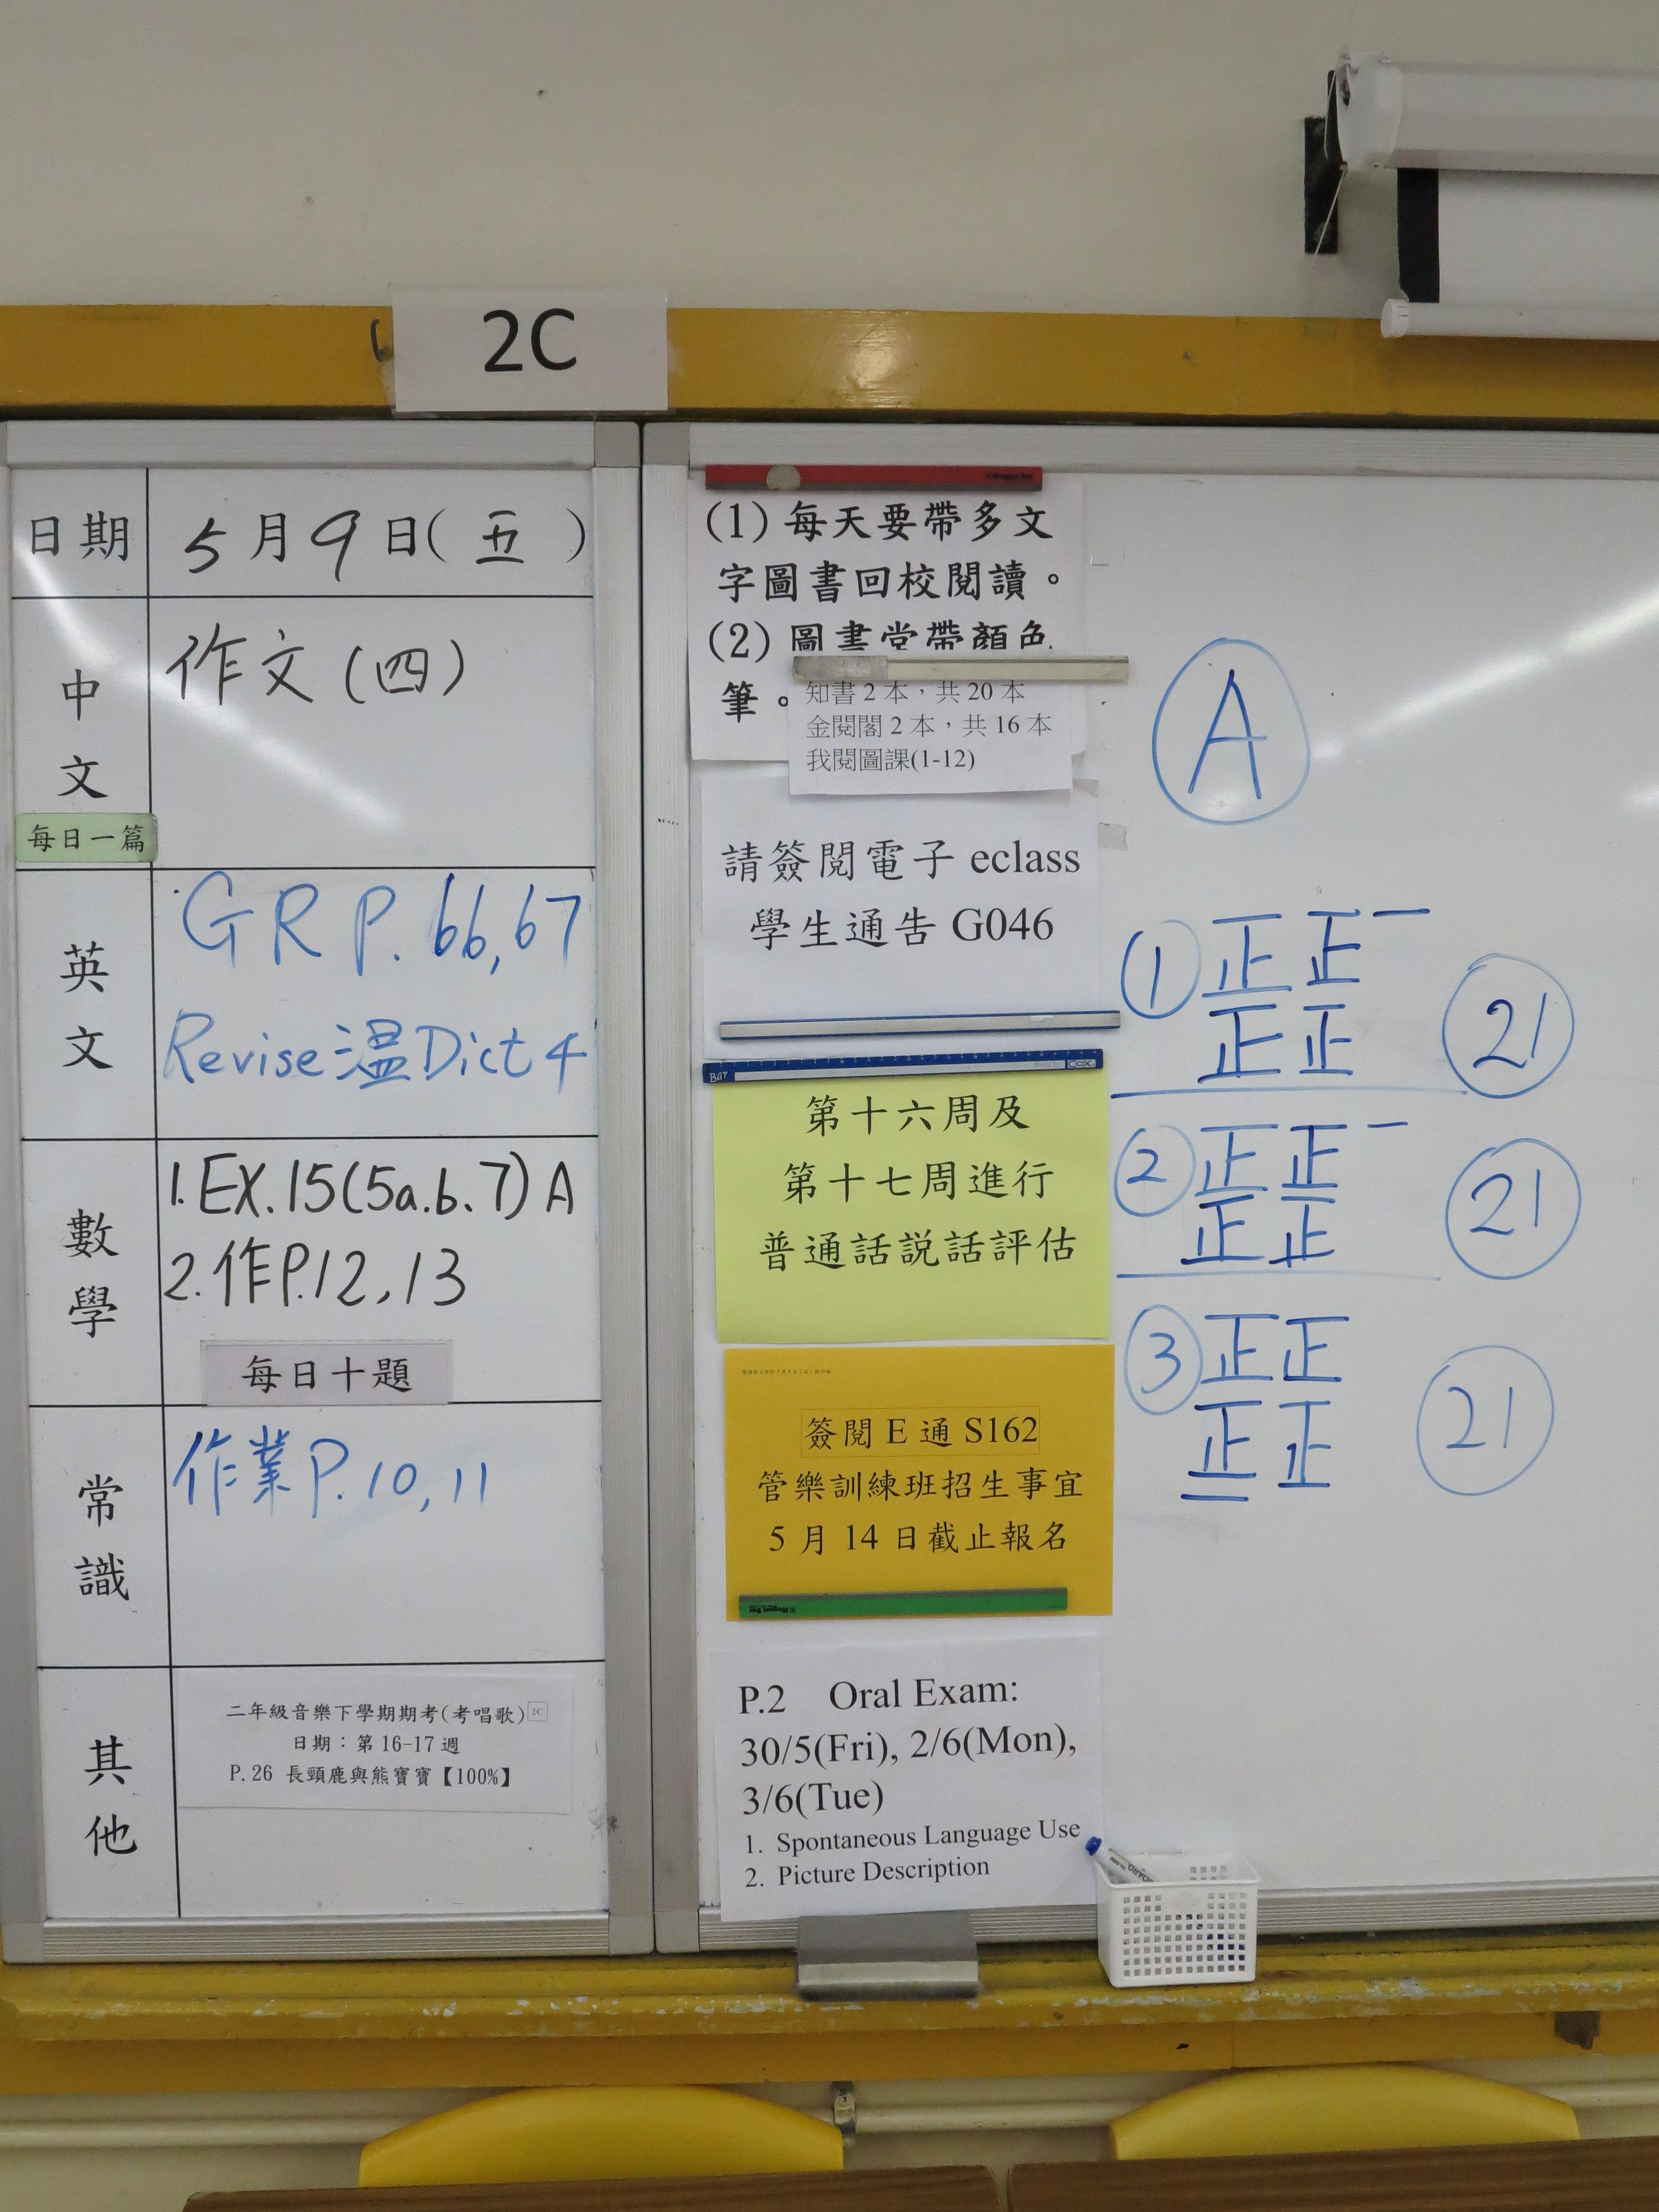 2C
日期
5月9日(五)
中文
每日一篇
作文(四)
英文
GR P. 66, 67
Revise 溫 Dict 4
數學
1. EX. 15(5a. b. 7) A
2. 作P. 12, 13
每日十題
常識
作業P. 10, 11
其他
二年級音樂下學期期考(考唱歌) 2C
日期：第 16-17 週
P.26 長頸鹿與熊寶寶【100%】
(1) 每天要帶多文
字圖書回校閱讀。
(2) 圖書堂帶顏色
筆。
知書 2 本，共 20 本
金閱閣 2 本，共 16 本
我閱圖課(1-12)
請簽閱電子 eclass
學生通告 G046
第十六周及
第十七周進行
普通話說話評估
簽閱 E 通 S162
管樂訓練班招生事宜
5 月 14 日截止報名
P.2 Oral Exam:
30/5(Fri), 2/6(Mon),
3/6(Tue)
1. Spontaneous Language Use
2. Picture Description
A
① 正正一
正正
21
② 正正一
正正
21
③ 正正
正正
一
21